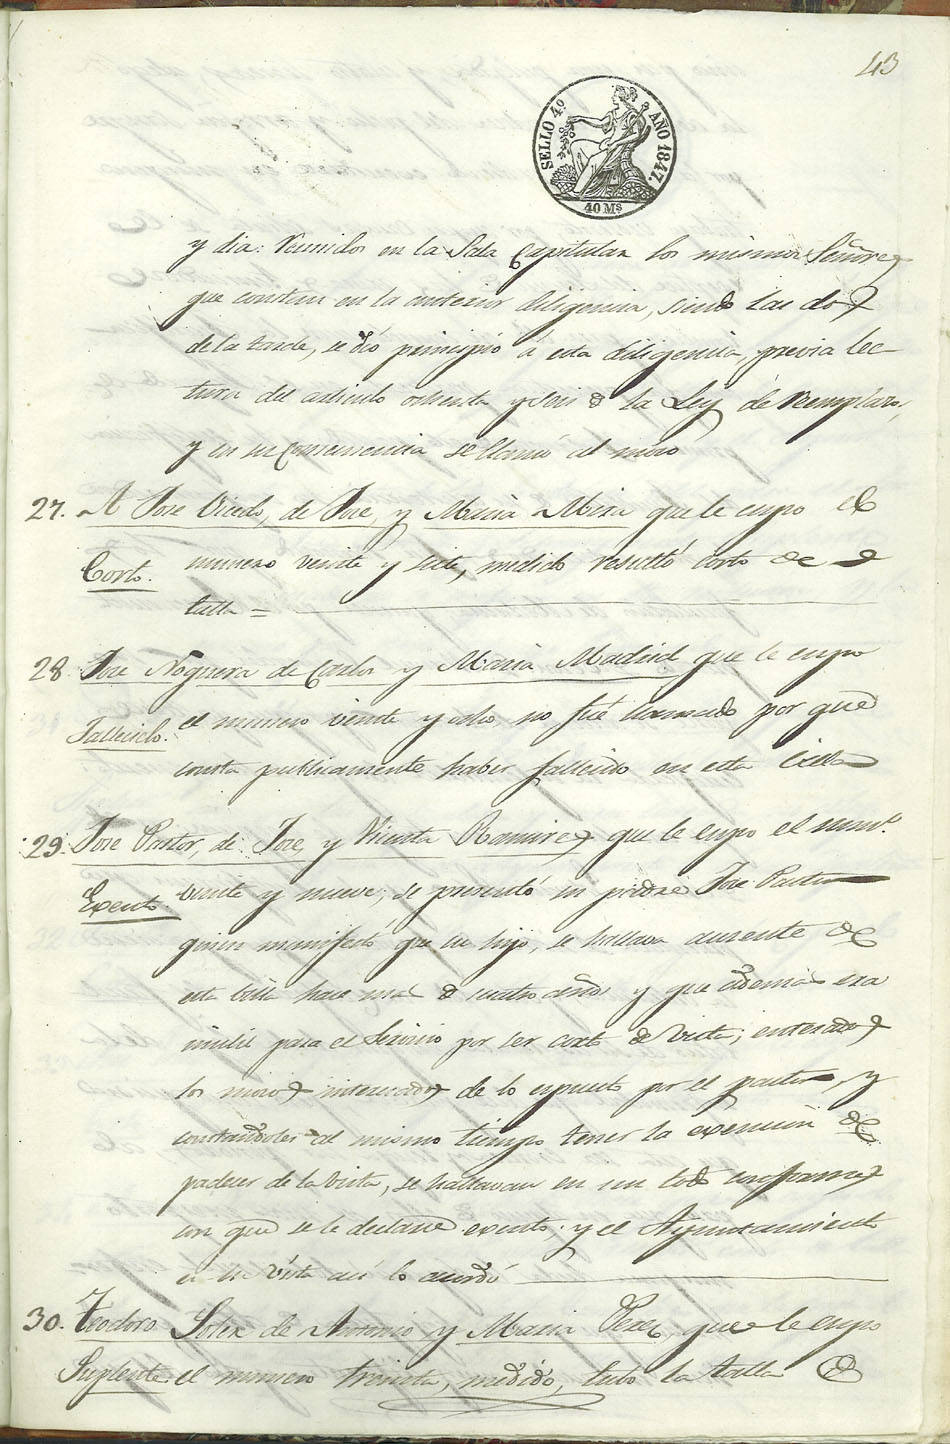 43
SELLO 4º AÑO 1847.
40 Ms
y dia: Reunidos en la Sala Capitular los mismos Señores
que constan en la anterior diligencia, siendo las dos
de la tarde, se dió principio á esta diligencia, previa lec-
tura del articulo ochenta y seis de la Ley de Reemplazos,
y en su consecuencia se llamó al mozo
27. A Jose Vicedo, de Jose, y Maria Mira que le cupo el
Corto. numero veinte y siete, medido resultó corto de
talla =
28 Jose Noguera de Carlos y Maria Madrid que le cupo
Fallecido. el numero veinte y ocho no fué llamado por que
consta publicamente haber fallecido en esta Villa
29. Jose Pastor, de Jose, y Vicenta Ramirez que le cupo el numº
Exento. veinte y nueve, se presentó su padre Jose Pastor
quien manifestó que su hijo, se hallava ausente de
esta Villa hace mas de cuatro años y que ademas era
inutil para el servicio por ser corto de vista; enterados
los mozos interesados de lo espuesto por el pastor, y
constandoles al mismo tiempo tener la exencion de
padecer de la vista, se hallavan en un todo conformes
con que se le declare exento; y el Ayuntamiento
en su vista asi lo acordó
30. Teodoro Soler de Antonio y Maria Perez, que le cupo
Suplente el numero treinta, medido, tubo la talla